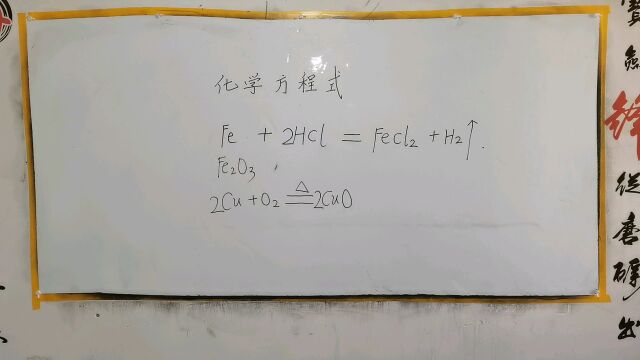 化学方程式
Fe + 2HCl = FeCl₂ + H₂↑.
Fe₂O₃
2Cu + O₂ ≜ 2CuO
锋从磨砺出